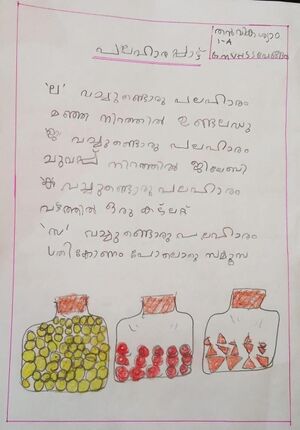 തൻവികശ്യാം
1-A
GMVHSS
പലഹാരപ്പാട്ട്
'ല' വച്ചുണ്ടൊരു പലഹാരം
മഞ്ഞ നിറത്തിൽ ഉണ്ടലഡു
ജ വച്ചുണ്ടൊരു പലഹാരം
ചുവപ്പ് നിറത്തിൽ ജിലേബി
ക വച്ചുണ്ടൊരു പലഹാരം
വട്ടത്തിൽ ഒരു കട്ലറ്റ്
'സ' വച്ചുണ്ടൊരു പലഹാരം
ത്രികോണം പോലൊരു സമൂസ